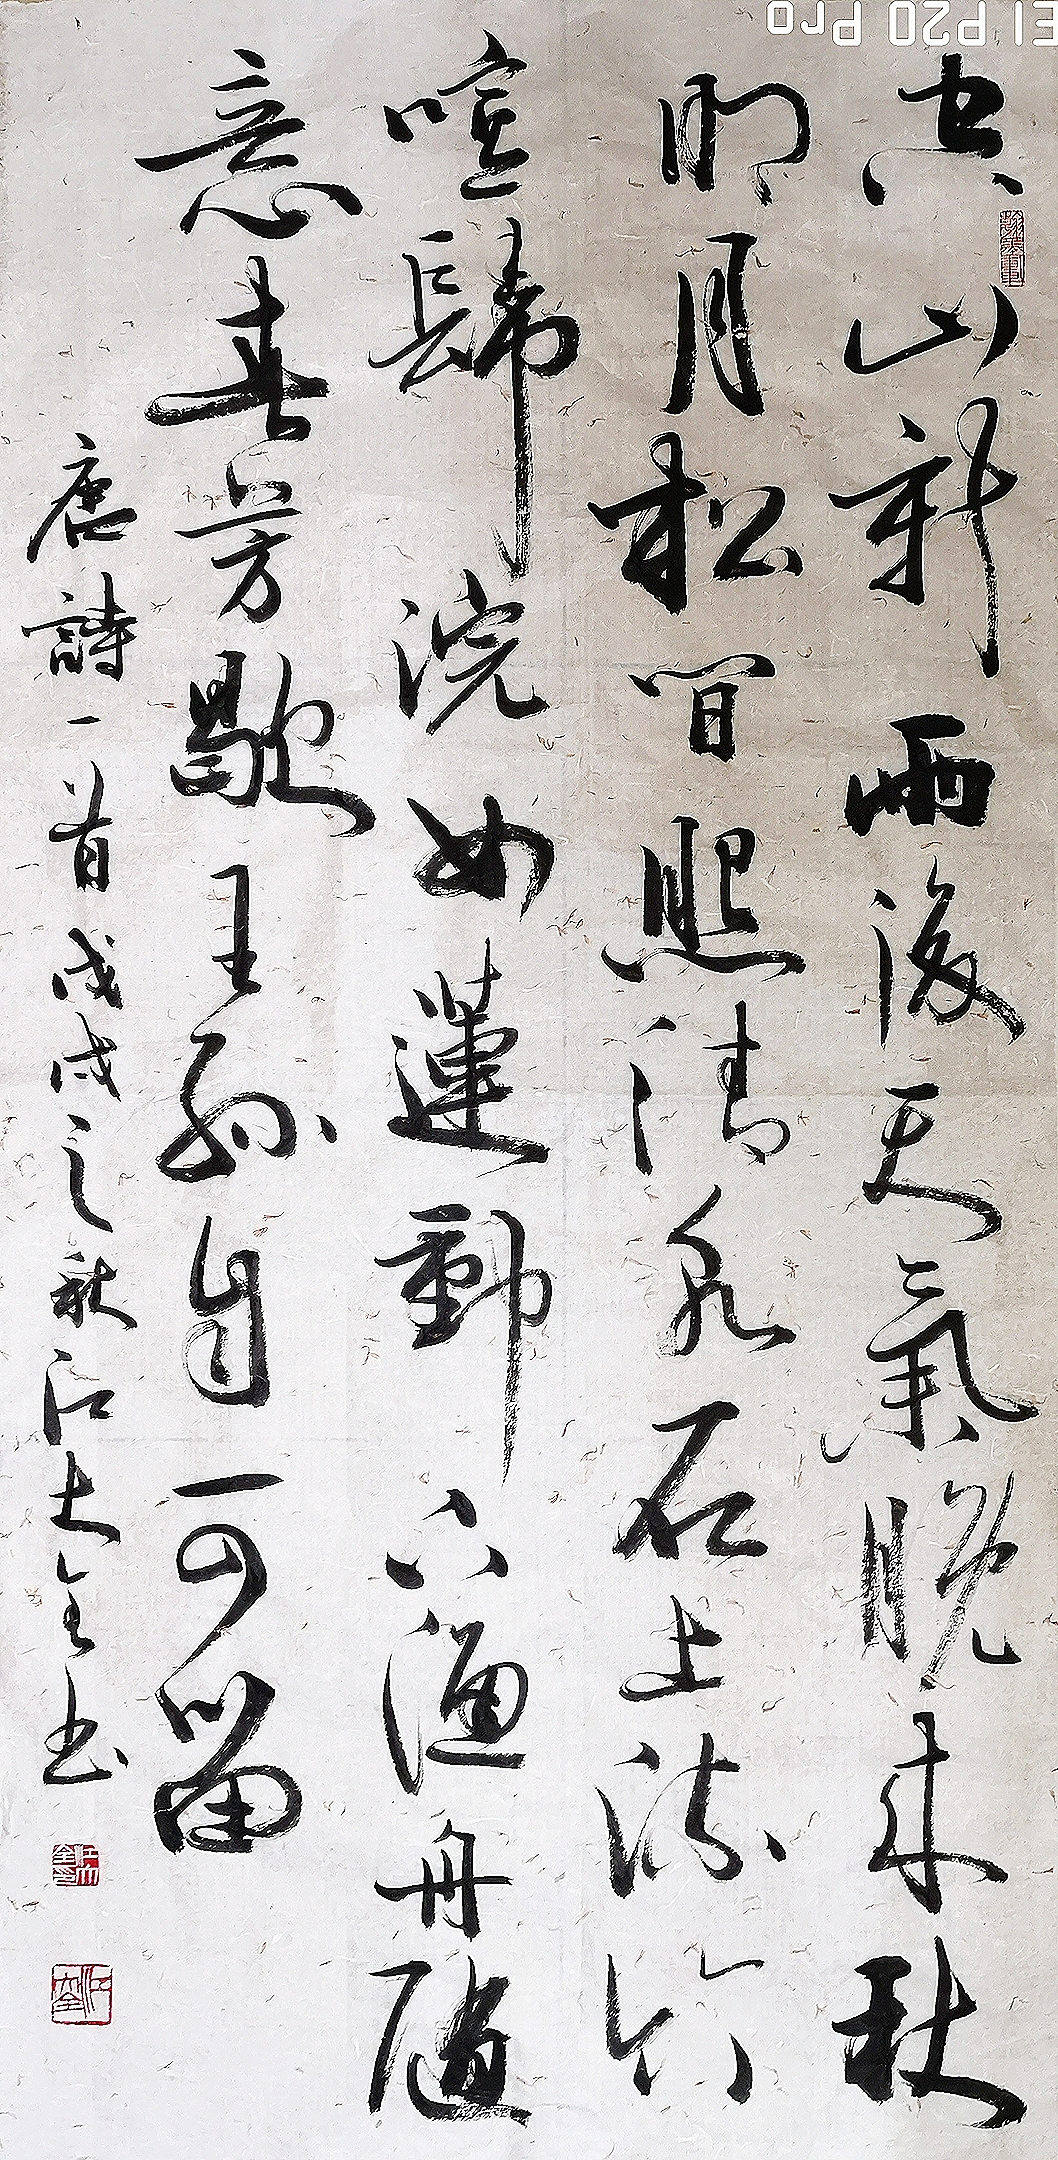 空山新雨後天氣晚來秋
明月松間照清泉石上流竹
喧歸浣女蓮動下漁舟隨
意春芳歇王孫自可留
唐詩一首戊戌之秋江大全书
江大全印
EI P20 Pro